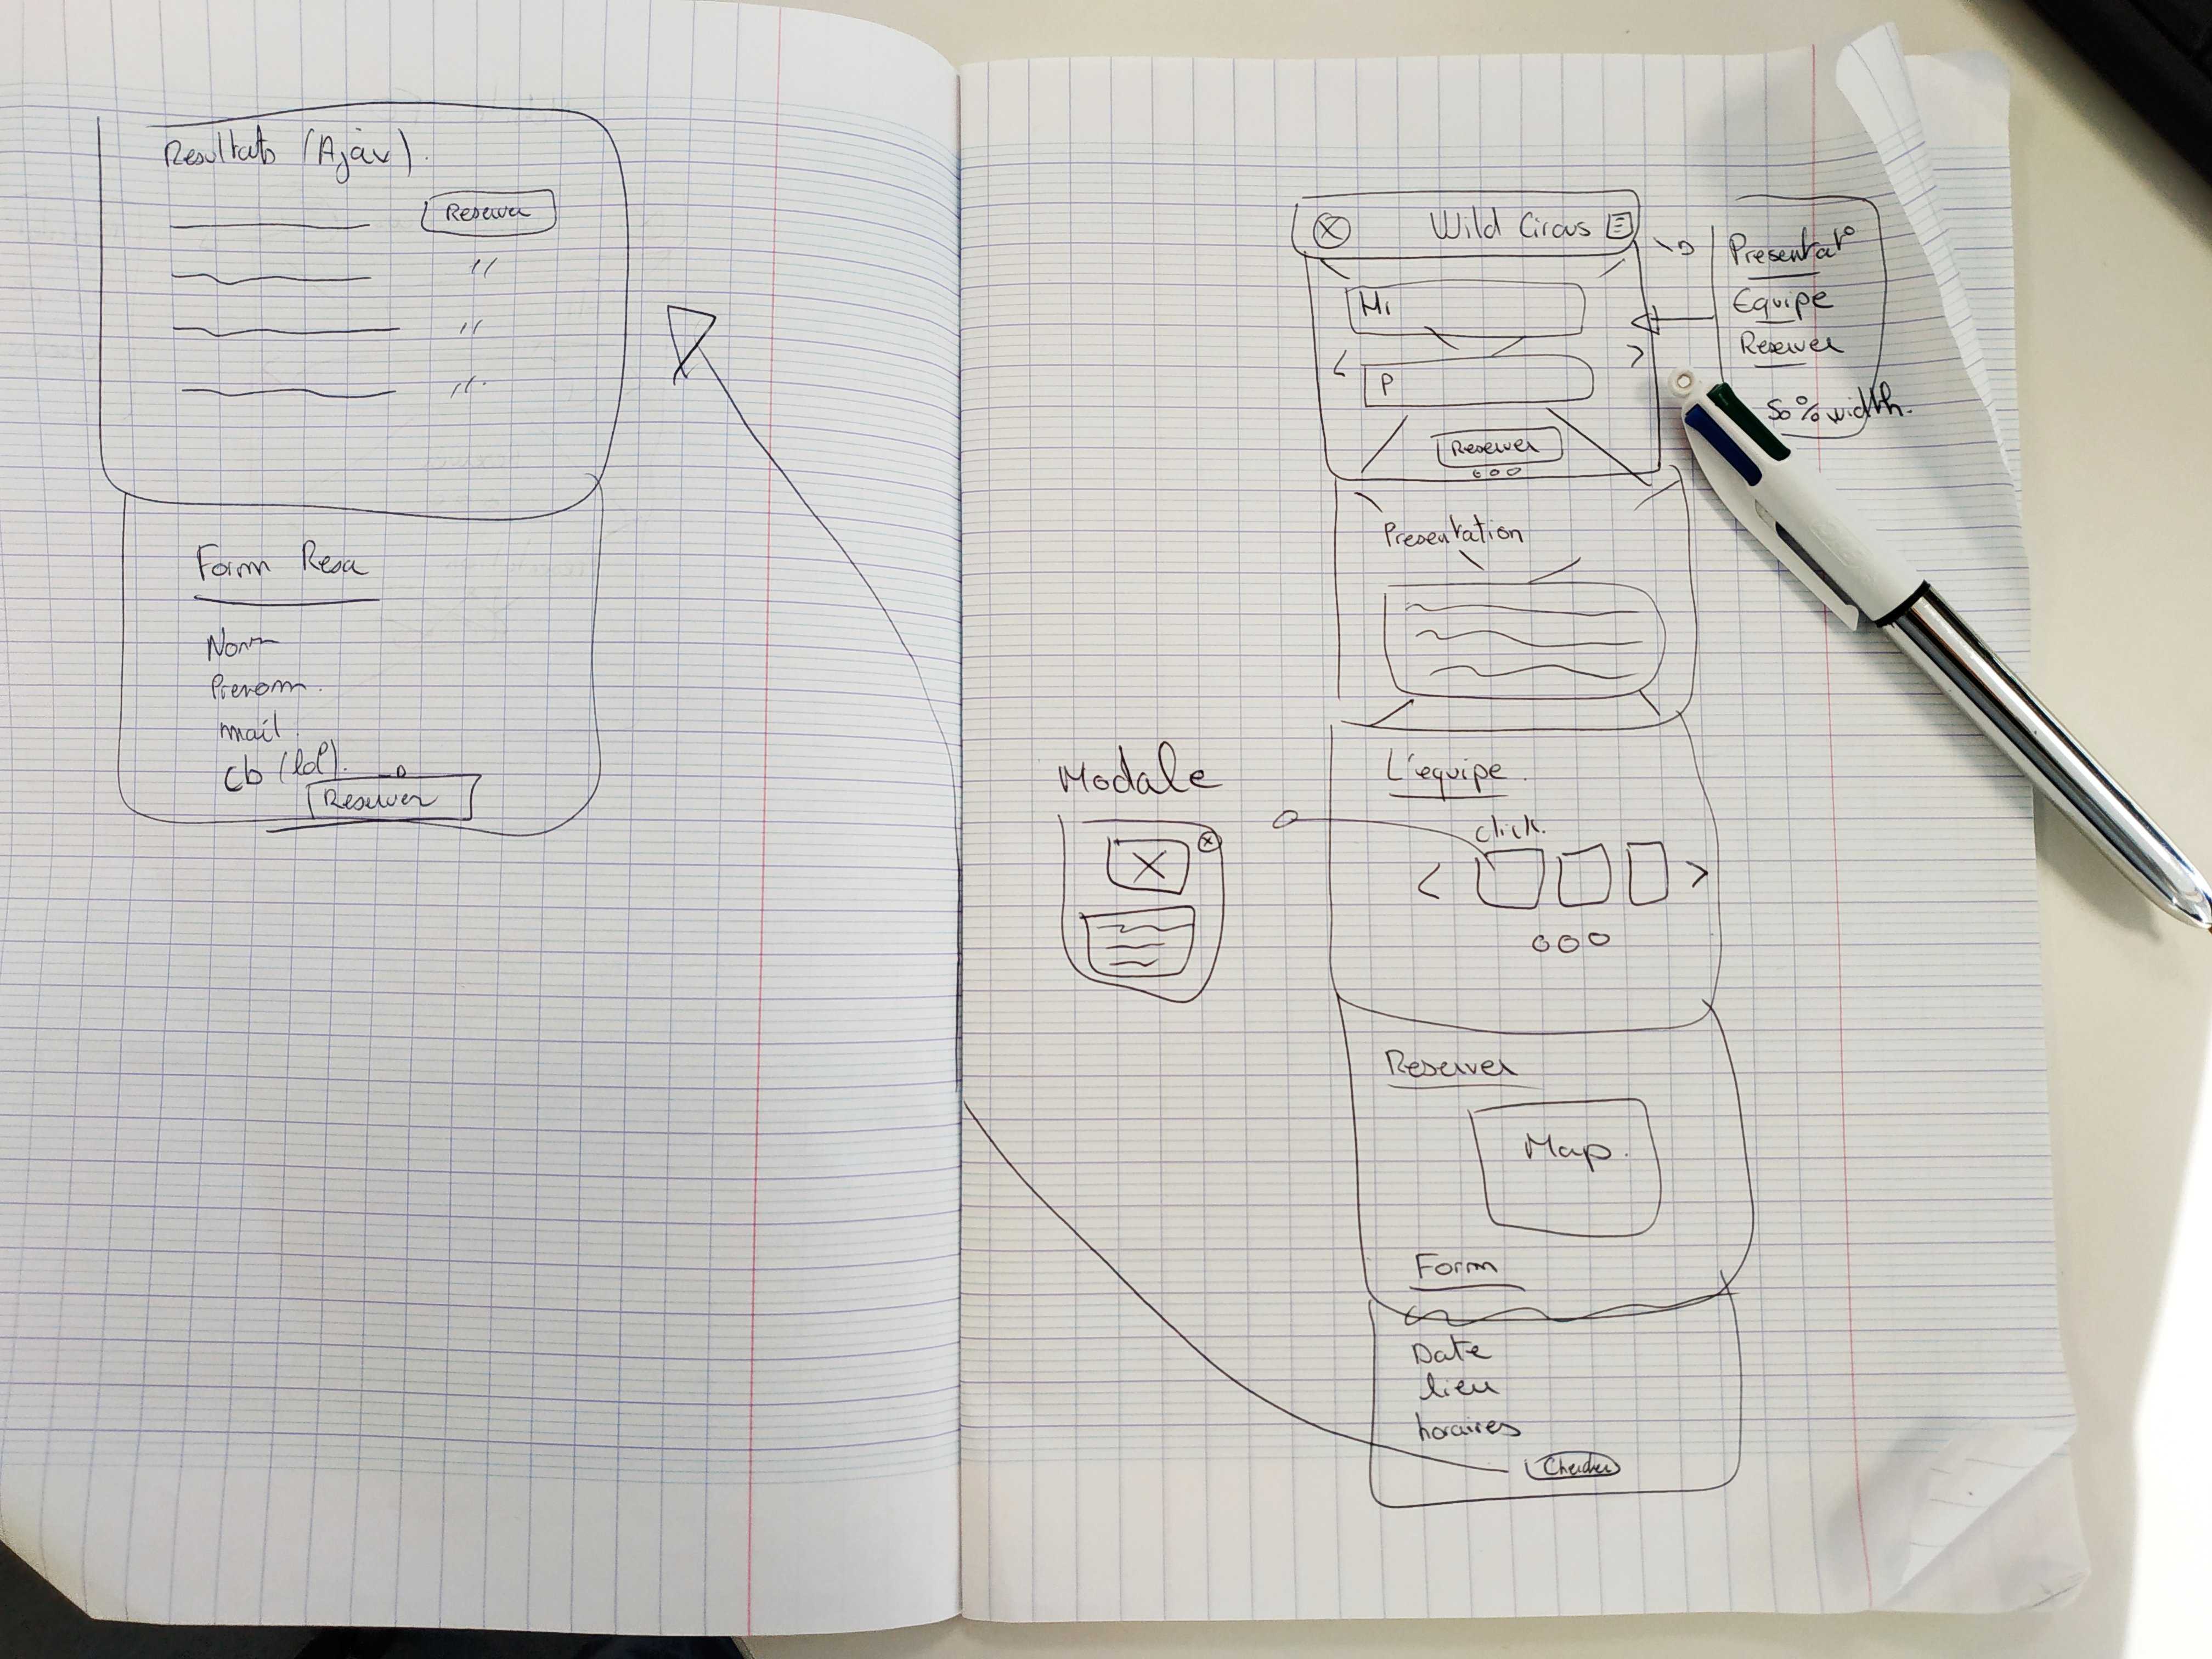 Resultats (Ajax).
Reserver
"
"
"
Form Resa
Nom
Prenom.
mail
cb (lol).
Reserver
Wild Circus
H1
P
Reserver
Presentat°
Equipe
Reserver
50% width.
Presentation
Modale
L'equipe.
click.
Reserver
Map.
Form
Date
lieu
horaires
Chercher